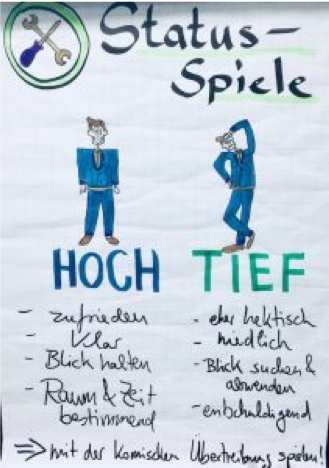 Status-
Spiele
HOCH
- zufrieden
- Klar
- Blick halten
- Raum & Zeit
bestimmend
TIEF
- eher hektisch
- niedlich
- Blick suchen &
abwenden
- entschuldigend
=> mit der komischen Übertreibung spielen!